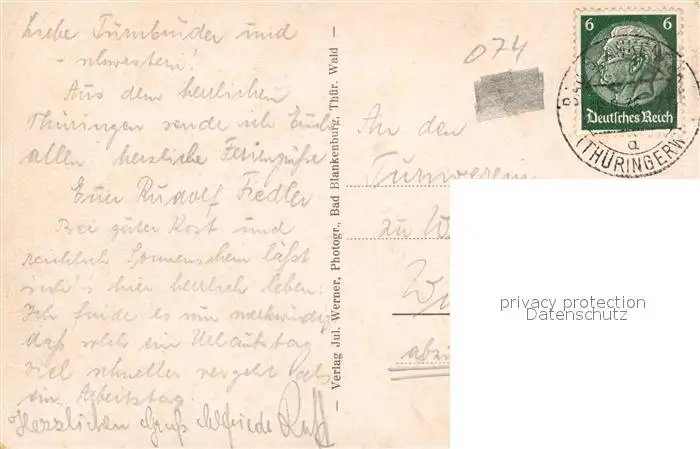 Liebe Turnbrüder und
-schwestern!
Aus dem herrlichen
Thüringen sende ich Euch
allen herzliche Feriengrüße
Euer Rudolf Fiedler
Bei guter Kost und
reichlich Sonnenschein läßt
sich's hier herrlich leben.
Ich finde es nur merkwürdig
daß solch ein Urlaubstag
viel schneller vergeht als
ein Arbeitstag.
Herzlichen Gruß
— Verlag Jul. Werner, Photogr., Bad Blankenburg, Thür. Wald —
074
6 6
Deutsches Reich
a
(THÜRINGERW
An den
Turnverein
zu W
privacy protection
Datenschutz